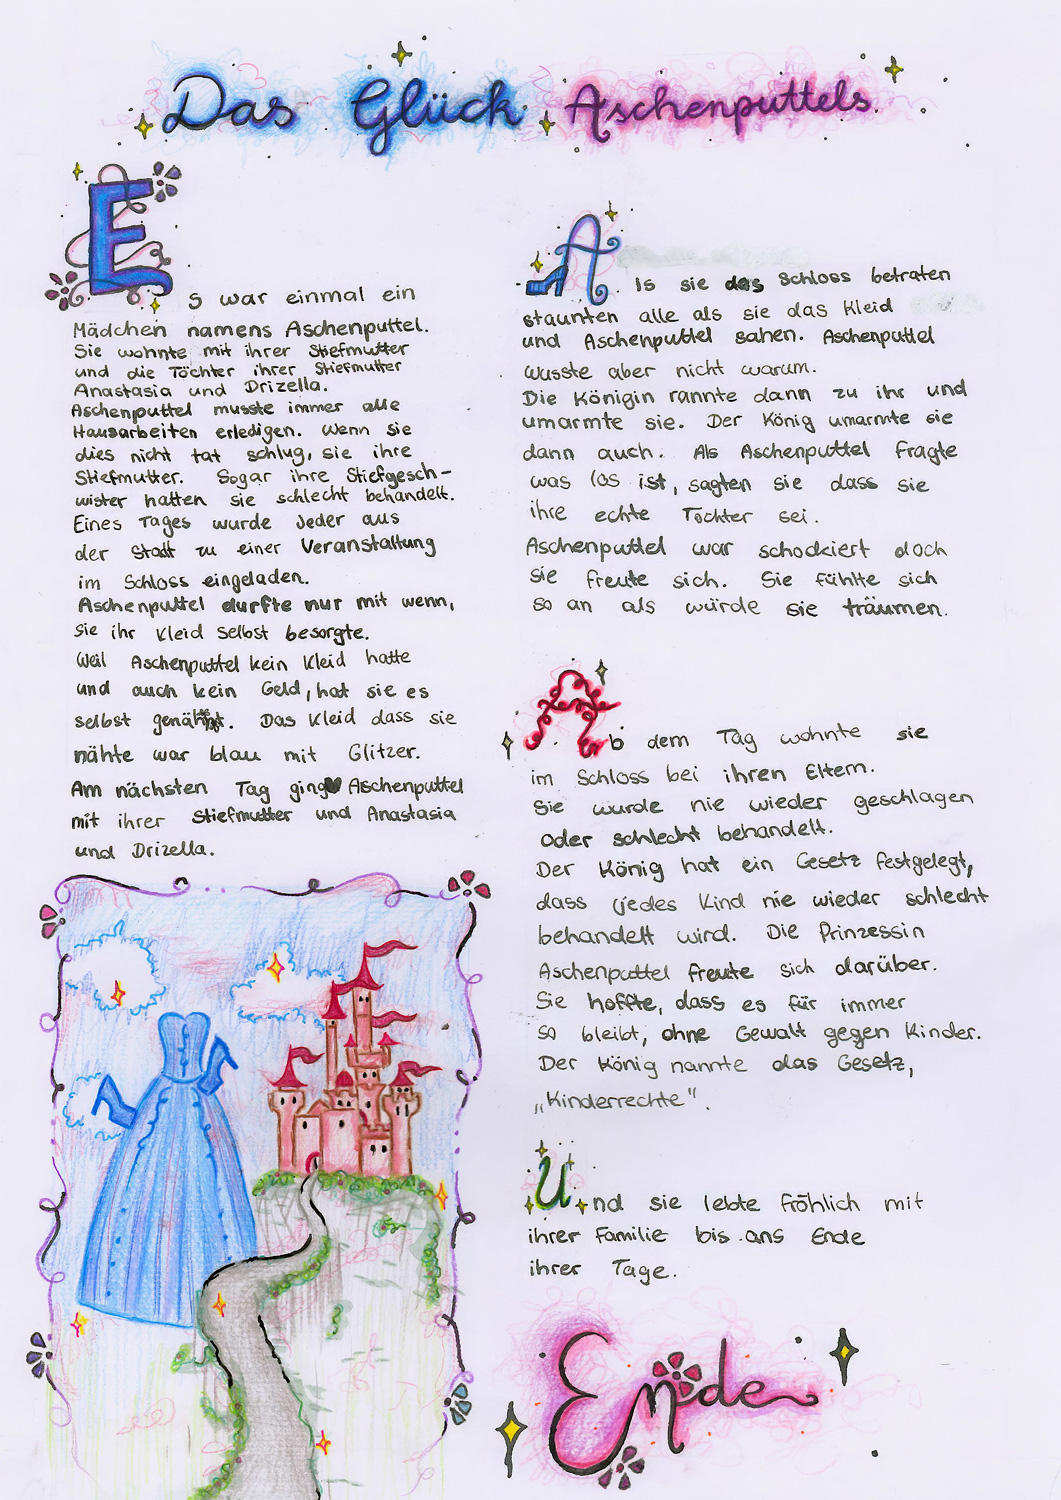 Das Glück Aschenputtels
Es war einmal ein
Mädchen namens Aschenputtel.
Sie wohnte mit ihrer Stiefmutter
und die Töchter ihrer Stiefmutter
Anastasia und Drizella.
Aschenputtel musste immer alle
Hausarbeiten erledigen. Wenn sie
dies nicht tat schlug, sie ihre
Stiefmutter. Sogar ihre Stiefgesch-
wister hatten sie schlecht behandelt.
Eines Tages wurde Jeder aus
der Stadt zu einer Veranstaltung
im Schloss eingeladen.
Aschenputtel durfte nur mit wenn,
sie ihr Kleid selbst besorgte.
Weil Aschenputtel kein Kleid hatte
und auch kein Geld, hat sie es
selbst genäht. Das Kleid dass sie
nähte war blau mit Glitzer.
Am nächsten Tag ging Aschenputtel
mit ihrer Stiefmutter und Anastasia
und Drizella.
Als sie das Schloss betraten
staunten alle als sie das Kleid
und Aschenputtel sahen. Aschenputtel
wusste aber nicht warum.
Die Königin rannte dann zu ihr und
umarmte sie. Der König umarmte sie
dann auch. Als Aschenputtel fragte
was los ist, sagten sie dass sie
ihre echte Tochter sei.
Aschenputtel war schockiert doch
sie freute sich. Sie fühlte sich
so an als würde sie träumen.
Ab dem Tag wohnte sie
im Schloss bei ihren Eltern.
Sie wurde nie wieder geschlagen
oder schlecht behandelt.
Der König hat ein Gesetz festgelegt,
dass jedes Kind nie wieder schlecht
behandelt wird. Die Prinzessin
Aschenputtel freute sich darüber.
Sie hoffte, dass es für immer
so bleibt, ohne Gewalt gegen Kinder.
Der König nannte das Gesetz,
„Kinderrechte".
Und sie lebte fröhlich mit
ihrer Familie bis ans Ende
ihrer Tage.
Ende